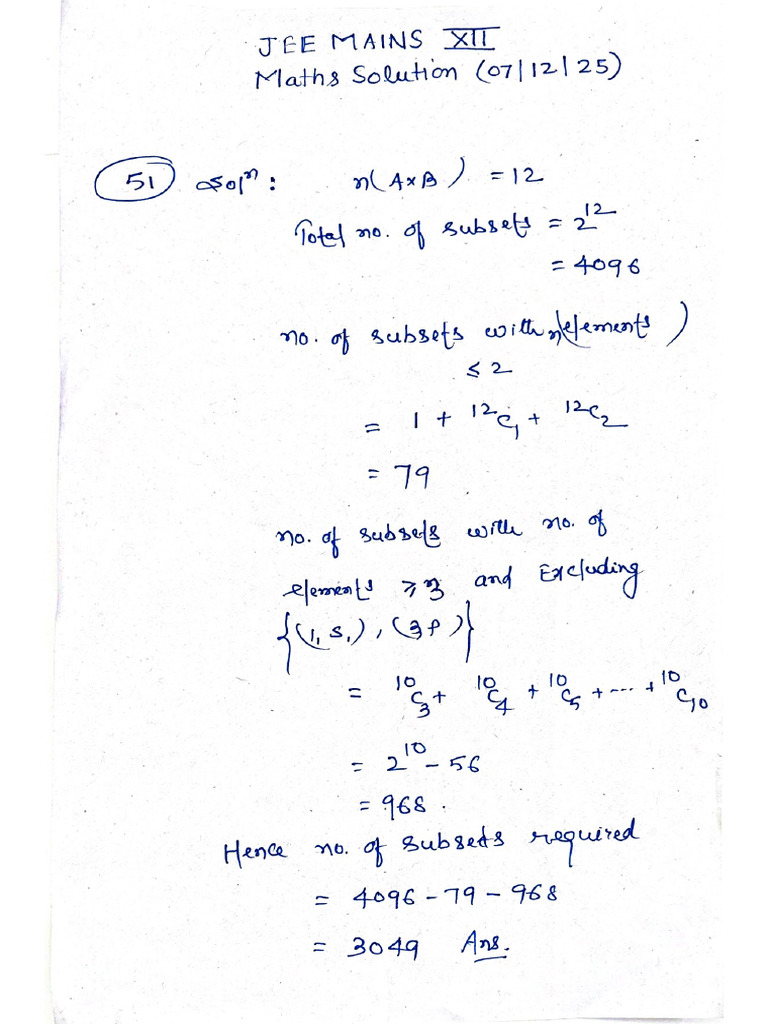 JEE MAINS XII
Maths Solution (07/12/25)
51 Solⁿ: n(A×B) = 12
Total no. of subsets = 2¹²
= 4096
no. of subsets with n(elements)
≤ 2
= 1 + ¹²C₁ + ¹²C₂
= 79
no. of subsets with no. of
elements ≥ 3 and Excluding
{(1, S,), (3 P)}
= ¹⁰C₃ + ¹⁰C₄ + ¹⁰C₅ + --- + ¹⁰C₁₀
= 2¹⁰ - 56
= 968.
Hence no. of subsets required
= 4096 - 79 - 968
= 3049 Ans.